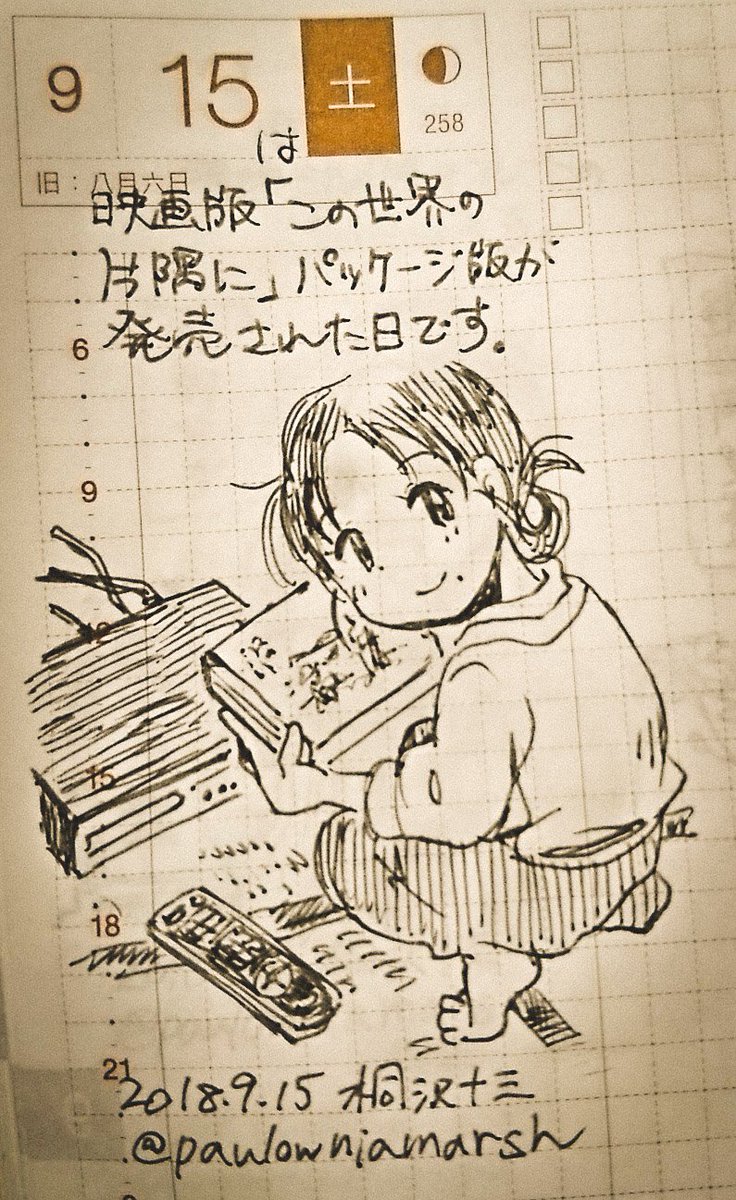 9 15 土
258
旧：八月六日
は
映画版「この世界の
片隅に」パッケージ版が
発売された日です。
6
9
12
15
18
21
2018.9.15 桐沢十三
@paulowniamarsh